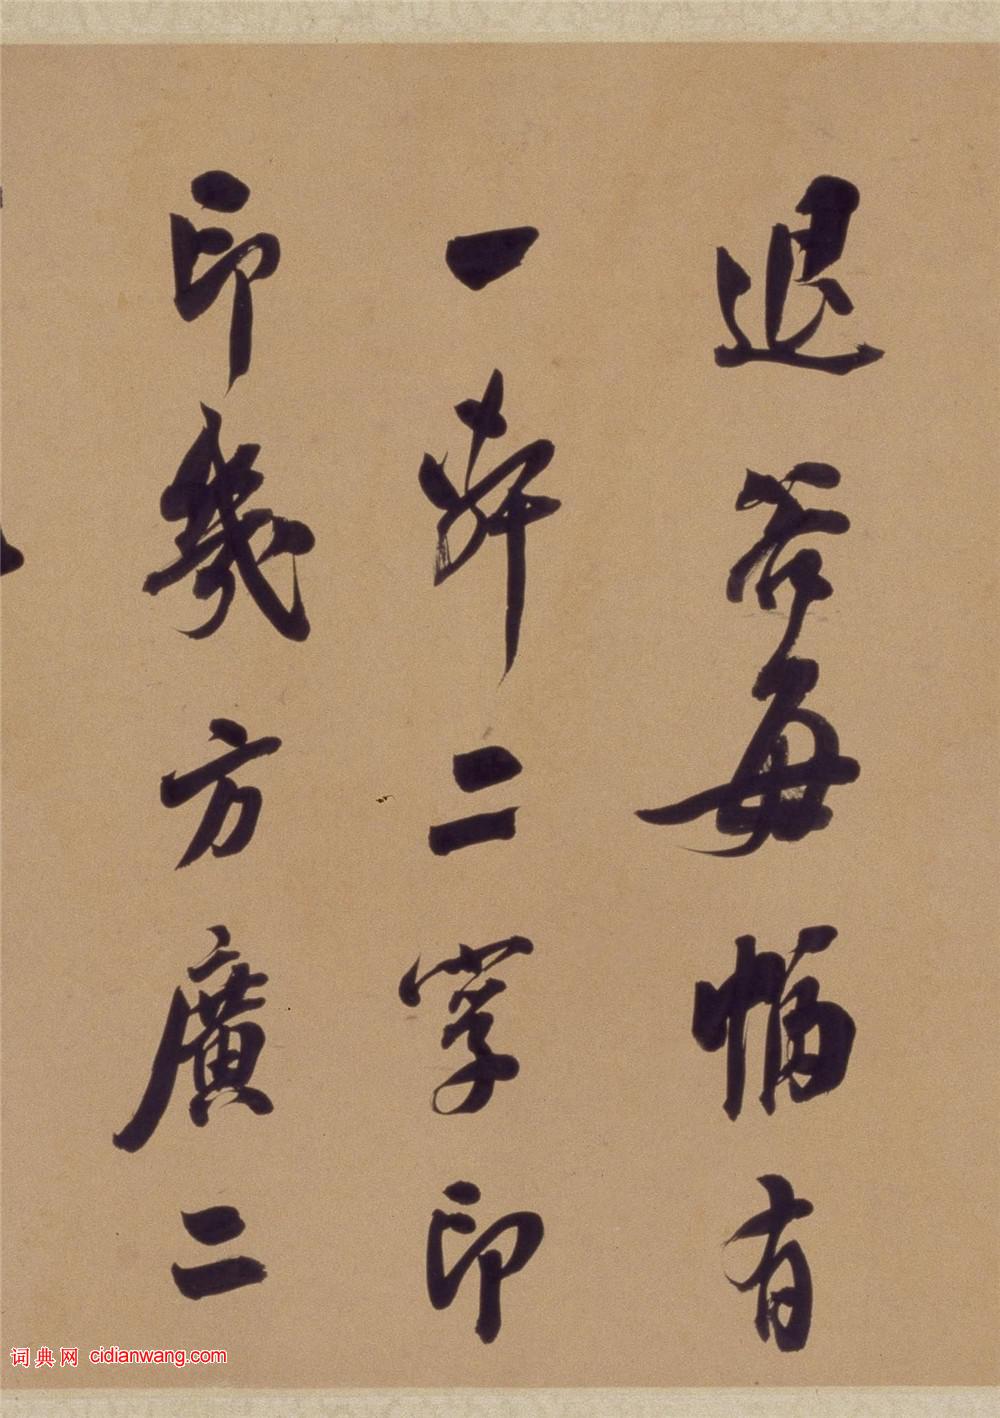 退谷每幅有
一軒二字印
印幾方廣二
词典网 cidianwang.com